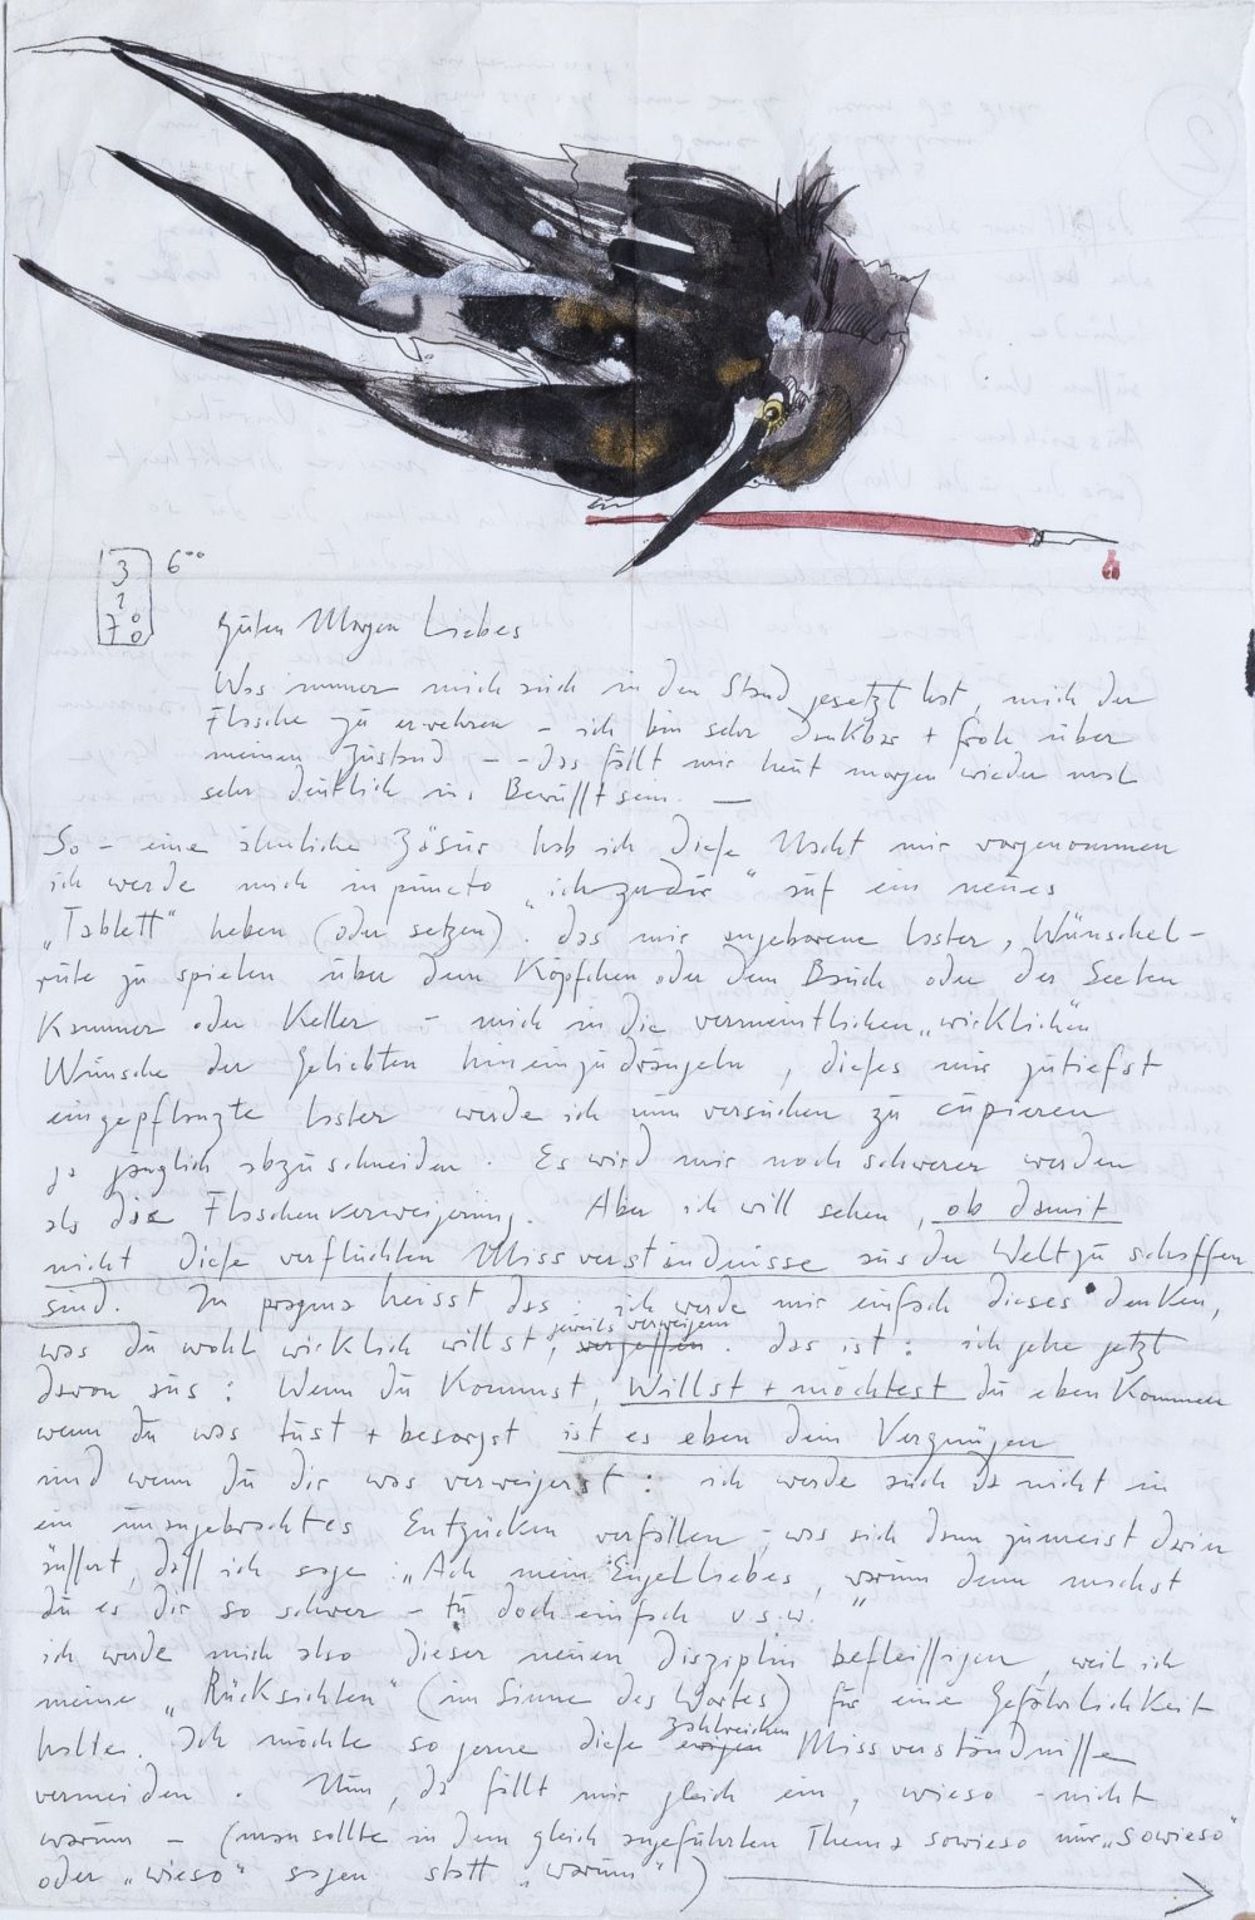 3
1
70
6°°
Guten Morgen Liebes
Was immer mich auch in den Stand gesetzt hat, mich der
Flasche zu erwehren – ich bin sehr dankbar + froh über
meinen Zustand – – das fällt mir heut morgen wieder mal
sehr deutlich ins Bewußtsein. —
So – eine ähnliche Zäsur hab ich diese Nacht mir vorgenommen
ich werde mich in puncto „ich zu dir“ auf ein neues
„Tablett“ heben (oder setzen). das mir angeborene Laster, Wünschel-
rute zu spielen über dem Köpfchen oder dem Bauch oder der Seelen
Kammer oder Keller – mich in die vermeintlichen „wirklichen“
Wünsche der Geliebten hineinzudrängeln, dieses mir zutiefst
eingepflanzte Laster werde ich nun versuchen zu cupieren
ja gänzlich abzuschneiden. Es wird mir noch schwerer werden
als die Flaschenverweigerung. Aber ich will sehen, ob damit
nicht diese verfluchten Missverständnisse aus der Welt zu schaffen
sind. In pragma heisst das: ich werde mir einfach dieses denken,
jeweils verweigern
was du wohl wirklich willst, vergessen. das ist: ich gehe jetzt
davon aus: Wenn du kommst, willst + möchtest du eben kommen
wenn du was tust + besorgst ist es eben dein Vergnügen
und wenn du dir was verweigerst: ich werde auch da nicht in
ein unangebrachtes Entzücken verfallen, was sich dann zumeist darin
äußert, daß ich sage: „Ach mein EngelLiebes, warum denn machst
du es dir so schwer – tu doch einfach u.s.w.“
ich werde mich also dieser neuen Disziplin befleißigen, weil ich
meine „Rücksichten“ (im Sinne des Wortes) für eine Gefährlichkeit
zahlreichen
halte. Ich möchte so gerne diese ewigen Missverständnisse
vermeiden. Nun, da fällt mir gleich ein, wieso – nicht
warum – (man sollte in dem gleich angeführten Thema sowieso nur „sowieso“
oder „wieso“ sagen statt „warum“)